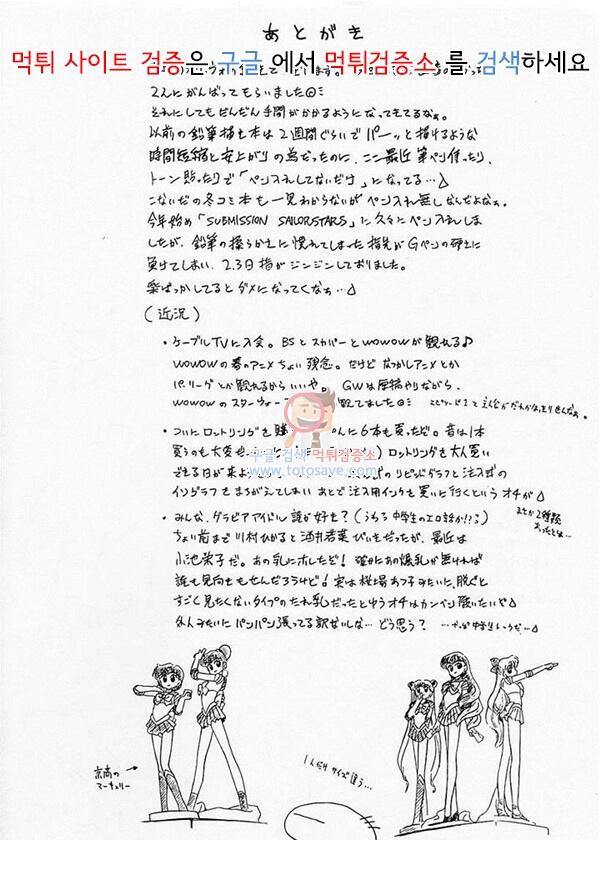 あとがき
먹튀 사이트 검증은 구글 에서 먹튀검증소 를 검색하세요
2人にがんばってもらいました
それにしてもだんだん手間がかかるようになってきてるなぁ。
以前の鉛筆描き本は2週間ぐらいでパーッと描けるような
時間短縮と安上がりの為だったのに、ここ最近筆ペン使ったり、
トーン貼ったりで「ペン入れしてないだけ」になってる…
こないだの冬コミ本も一見わからないがペン入れ無しなんだよなぁ。
今年始め「SUBMISSION SAILORSTARS」に久々にペン入れしま
したが、鉛筆の柔らかさに慣れてしまった指先がGペンの硬さに
負けてしまい、2、3日指がジンジンしておりました。
楽ばっかしてるとダメになってくなぁ…
(近況)
・ケーブルTVに入会。BSとスカパーとWOWOWが観れる♪
WOWOWの春のアニメちょい残念。だけどなつかしアニメとか
パ・リーグとか観れるからいいや。GWは原稿やりながら、
WOWOWのスターウォーズ 観てました
・ついにロットリングを購 に6本も買ったぞ。昔は1本
買うのも大変 ロットリングを大人買い
できる日が来よ のラピッドグラフと注入式の
イソグラフをまちがえてしまいあとで注入用インクを買いに行くというオチが
まさか2種類
あったとは…
구글 검색 먹튀검증소
www.totosave.com
・みんな、グラビアアイドル誰が好き?(うわっ中学生のエロ話か!?)
ちょい前まで川村ひかると酒井若菜びいきだったが、最近は
小池栄子だ。あの乳にホレたぞ!確かにあの爆乳が無ければ
誰も見向きもせんだろうけど!実は 脱ぐと
すごく見たくないタイプのたれ乳だったとゆうオチはカンベン願いたいぞ
外人みたいにパンパン張ってる訳ないしな…どう思う?
京南の
マーキュリー
1人だけサイズ違う…